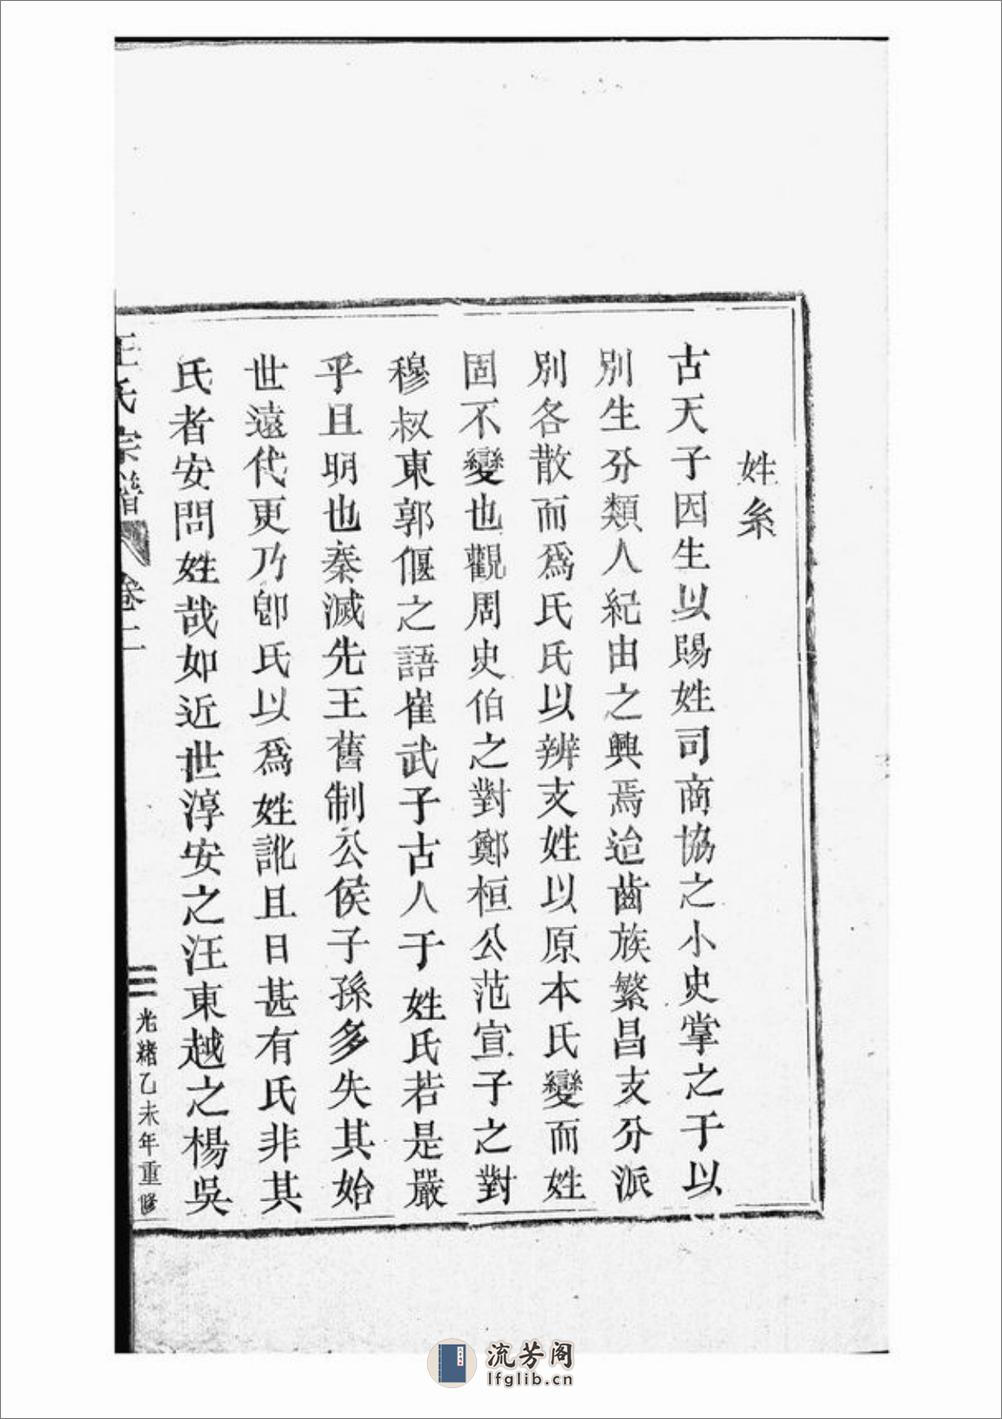 姓系
古天子因生以賜姓司商協之小史掌之于以
別生分類人紀由之興焉迨齒族繁昌支分派
別各散而爲氏氏以辨支姓以原本氏變而姓
固不變也觀周史伯之對鄭桓公范宣子之對
穆叔東郭偃之語崔武子古人于姓氏若是嚴
乎且明也秦滅先王舊制公侯子孫多失其始
世遠代更乃卽氏以爲姓訛且日甚有氏非其
氏者安問姓哉如近世淳安之汪東越之楊吳
王氏宗譜 卷二 二 光緒乙未年重修
流芳阁
lfglib.cn